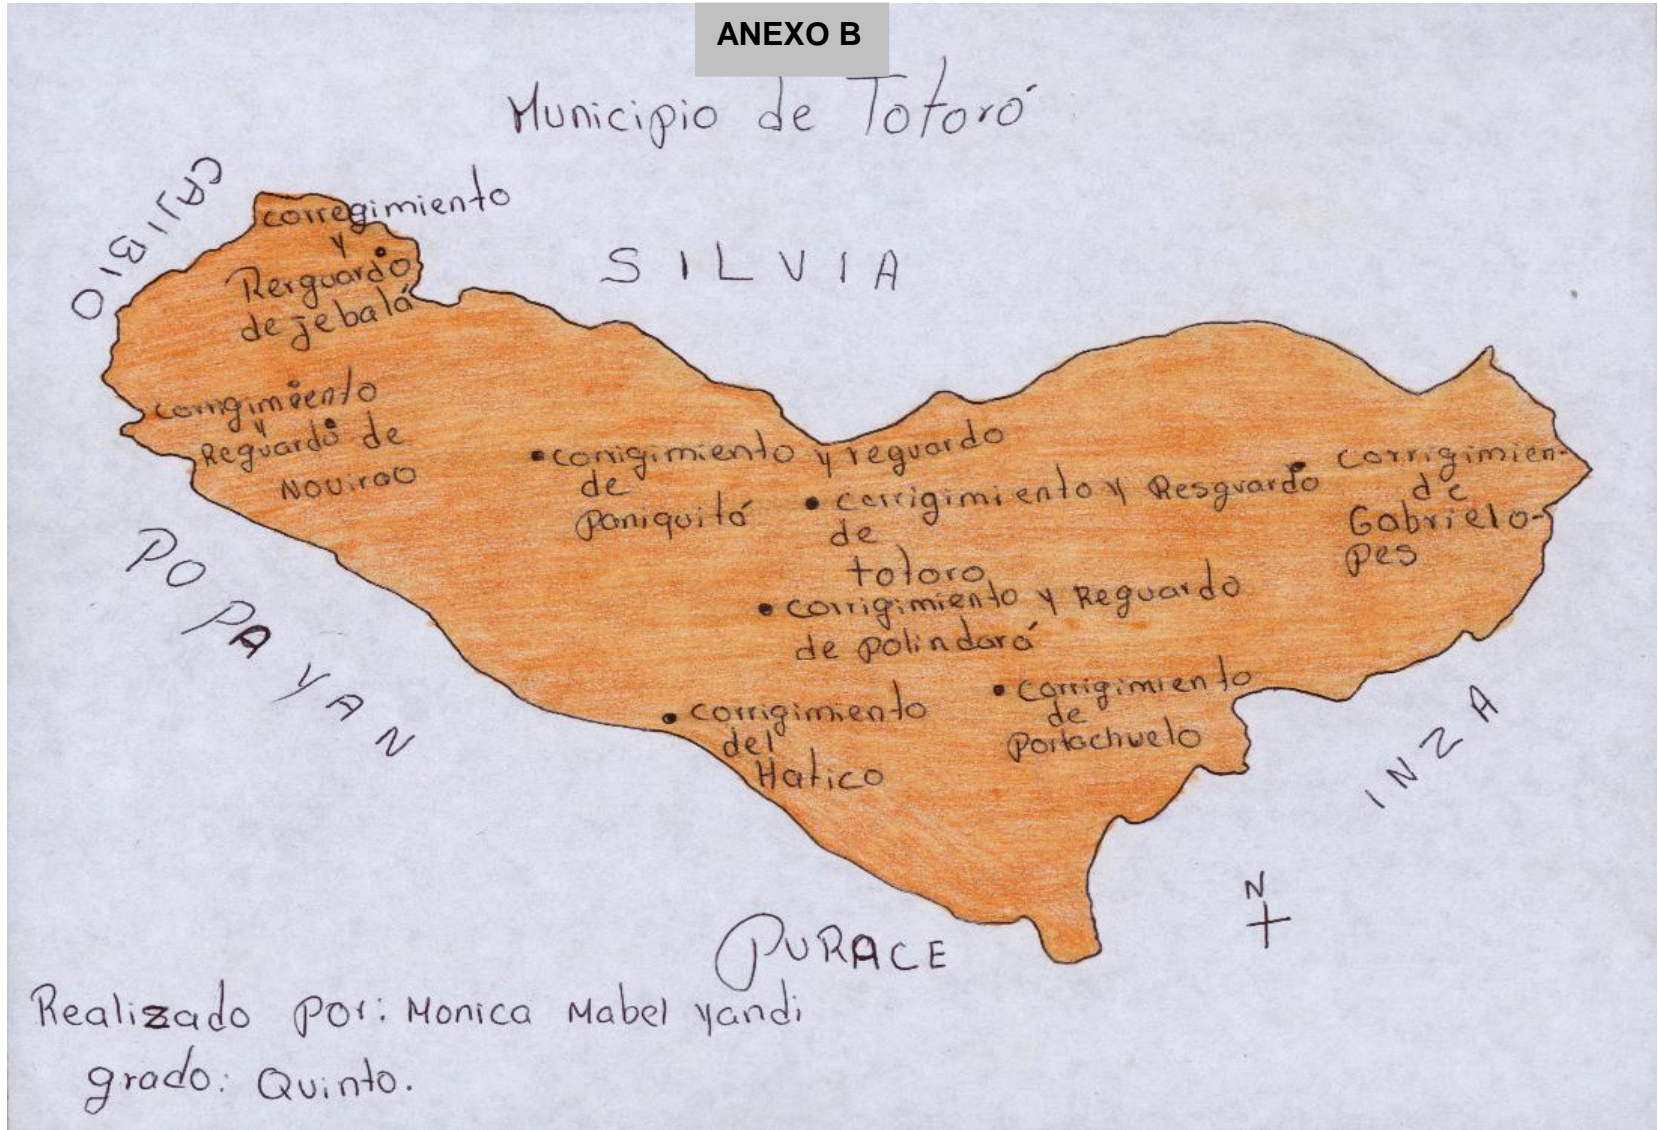 ANEXO B
Municipio de Totoró
CAJIBIO
SILVIA
corregimiento
y
Rerguardo
de jebalá
corrigimiento
y
Reguardo de
Novirao
•corrigimiento y reguardo
de
paniquitá
• corrigimiento y Resguardo
de
totoro
corrigimien-
de
Gabrielo-
pes
• corrigimiento y Reguardo
de polindará
• corrigimiento
de
portachuelo
• corrigimiento
del
Hatico
POPAYAN
INZA
PURACE
N
Realizado por: Monica Mabel yandi
grado: Quinto.